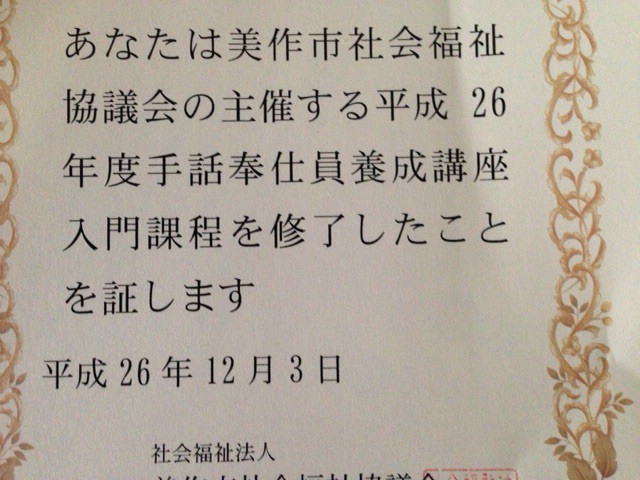 あなたは美作市社会福祉
協議会の主催する平成 26
年度手話奉仕員養成講座
入門課程を修了したこと
を証します
平成 26 年 12 月 3 日
社会福祉法人
美作市社会福祉協議会